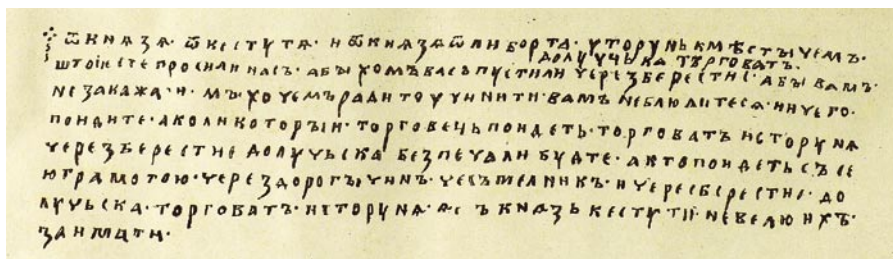 ѿ кнѧзѧ · ѿ кестутѧ · и ѿ кнѧзѧ ѿ либорта · у торунь к мѣстычемъ ·
што іесте просили насъ · абы хомъ васъ пустили черезъ берестиіе · долучька търговатъ · абы вамъ ·
не закажа · и · мы хочемъ ради то учинити · вамъ не блюлитесѧ · ничего ·
поидите · а коли которыи · торговечь поидеть · торговатъ ис торунѧ
через берестие долучьска безпечали будте · а кто поидеть съ се
ю грамотою · через дорогычинъ · чесъ мелникъ · и чересъ берестиіе · до
лучьска · торговатъ · ис торунѧ · ѧсъ кнѧзь кестутіи · не велю ихъ ·
занмати ·